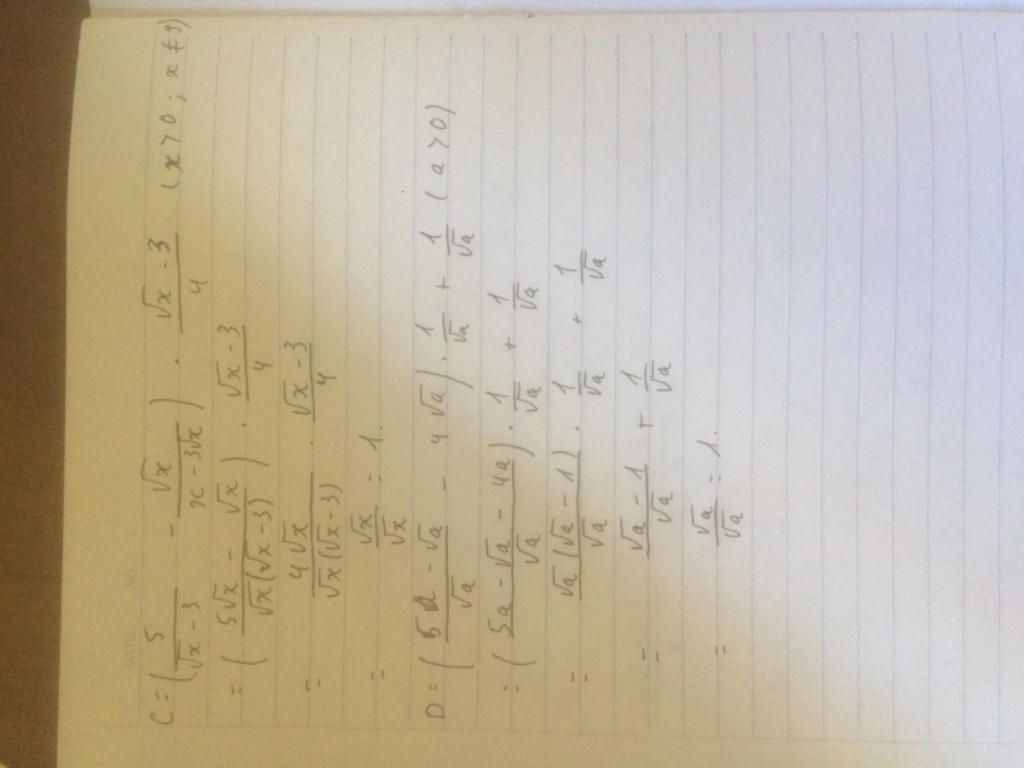 DATE NO.
C = (5/(√x - 3) - √x/(x - 3√x)) . (√x - 3)/4 (x > 0 ; x ≠ 9)
= ((5√x - √x)/(√x(√x - 3))) . (√x - 3)/4
= 4√x/(√x(√x - 3)) . (√x - 3)/4
= √x/√x = 1.
D = ((5a - √a)/√a - 4√a) . 1/√a + 1/√a (a > 0)
= ((5a - √a - 4a)/√a) . 1/√a + 1/√a
= √a(√a - 1)/√a . 1/√a + 1/√a
= (√a - 1)/√a + 1/√a
= √a/√a = 1.